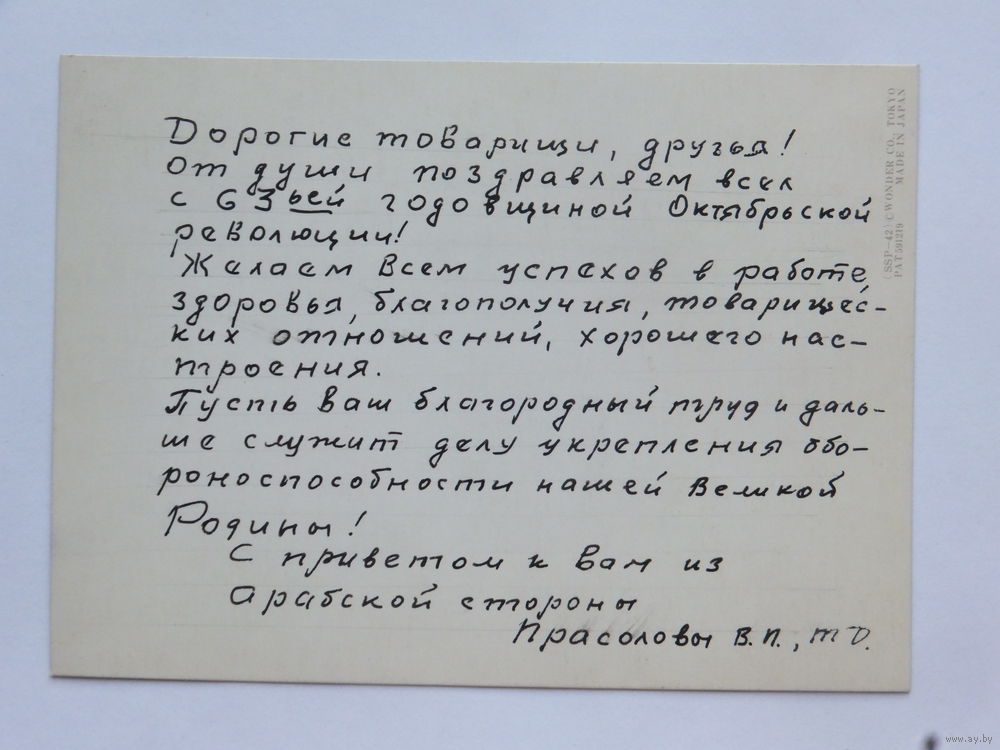 Дорогие товарищи, друзья!
От души поздравляем всех
с 63ьей годовщиной Октябрьской
революции!
Желаем всем успехов в работе,
здоровья, благополучия, товарищес-
ких отношений, хорошего нас-
троения.
Пусть Ваш благородный труд и даль-
ше служит делу укрепления обо-
роноспособности нашей Великой
Родины!
С приветом к Вам из
Арабской стороны
Прасоловы В.П., Т.D.
(SSP-42) © WONDER CO., TOKYO
PAT 591219 MADE IN JAPAN
www.ay.by